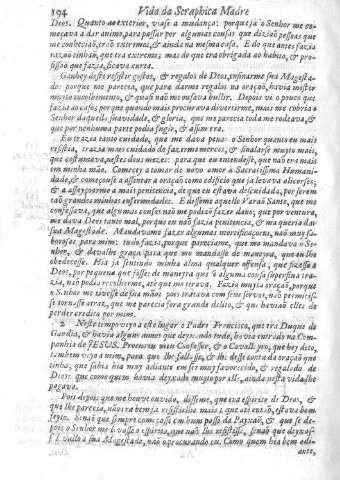 194 Vida da Seraphica Madre
Deos. Quanto ao exterior, viase a mudança: porque ja o Senhor me co-
meçava a dar animo, para passar por algumas cousas que diziaõ pessoas que
me conheciaõ, eraõ extremos, & ainda na mesma casa. E do que antes fazia
razaõ tinhaõ, que era extremo; mas do que era obrigada ao habito, & pro-
fissaõ que fazia, ficava curta.
Ganhey deste resistir gostos, & regalos de Deos, ensinarme sua Magesta-
de: porque me parecia, que para darme regalos na oraçaõ, havia mister
muito encolhimento, & quasi naõ me ousava bullir. Depois vi o pouco que
fazia ao caso; porque quando mais procurava divertirme, mais me cobria o
Senhor daquella suavidade, & gloria, que me parecia toda me rodeava, &
que por nenhuma parte podia fugir, & assim era.
Eu trazia tanto cuidado, que me dava pena: o Senhor quanto eu mais
resistia, trazia mais cuidado de fazerme mercès, & sinalarse muito mais,
que costumava, nestes dous mezes: para que eu entendesse, que naõ era mais
em minha maõ. Comecey a tomar de novo amor à Sacratissima Humani-
dade, & começouse a assentar a oraçaõ como edificio que ja levava alicerses;
& a affeyçoarme a mais penitencia, de que eu estava descuidada, por serem
taõ grandes minhas enfermidades. E disseme aquelle Varaõ Santo, que me
confessava, que algumas cousas naõ me podiaõ fazer dano, que por ventura,
me dava Deos tanto mal, porque eu naõ fazia penitencia, & ma queria dar
sua Magestade. Mandavame fazer algumas mortificaçoens, naõ muy sa-
borosas para mim: tudo fazia, porque pareciame, que mo mandava o Se-
nhor, & davalhe graça para que mo mandasse de maneyra, que eu lhe
obedecesse. Hia já sentindo minha alma qualquer offensa, que fizesse a
Deos, por pequena que fosse: de maneyra que se alguma cousa superflua tra-
zia, naõ podia recolherme, atè que me tirava. Fazia muyta oraçaõ, porque
o Senhor me tivesse de sua maõ; pois tratava com seus servos, naõ permitisse
tornasse atraz, que me parecia fora grande delito, & que haviaõ de
perder credito por mim.
2 Neste tempo veyo a este lugar o Padre Francisco, que era Duque de
Gandia, & havia alguns annos que deyxando tudo, havia entrado na Com-
panhia de JESUS. Procurou meu Confessor, & o Cavalleyro, que hey dito,
tambem veyo a mim, para que lhe fallasse, & lhe desse conta da oraçaõ que
tinha; que sabia hia muy adiante em ser muy favorecido, & regalado de
Deos: que como quem havia deyxado muyto por elle, ainda nesta vida lhe
pagava.
Pois depois que me houve ouvido, disseme, que era espirito de Deos, &
que lhe parecia, naõ era bem ja resistirlhe mais; que atè entaõ, estava bem
feyto. Senaõ que sempre começasse em hum passo da Payxaõ, & que se de-
pois o Senhor me levasse o espirito, que naõ lhe resistisse, senaõ que deyxas-
se levallo a sua Magestade, naõ o procurando eu. Como quem hia bem adi-
ante,